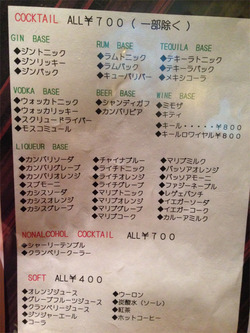 COCKTAIL ALL¥700(一部除く)
GIN BASE
◆ジントニック
◆ジンリッキー
◆ジンバック
RUM BASE
◆ラムトニック
◆ラムバック
◆キューバリバー
TEQUILA BASE
◆テキーラトニック
◆テキーラバック
◆メキシコーラ
VODKA BASE
◆ウォッカトニック
◆ウォッカリッキー
◆スクリュードライバー
◆モスコミュール
BEER BASE
◆シャンディガフ
◆カンパリビア
WINE BASE
◆ミモザ
◆キティ
◆キール・・・・・¥800
◆キールロワイヤル¥800
LIQUEUR BASE
◆カンパリソーダ
◆カンパリオレンジ
◆カンパリグレープ
◆スプモーニ
◆カシスソーダ
◆カシスオレンジ
◆カシスグレープ
◆チャイナブルー
◆ライチトニック
◆ライチオレンジ
◆ライチグレープ
◆マリブトニック
◆マリブオレンジ
◆マリブグレープ
◆マリブコーク
◆マリブミルク
◆パッソアオレンジ
◆パッソアモーニ
◆ファジーネーブル
◆レゲエパンチ
◆イエガーソーダ
◆イエガーコーク
◆カルーアミルク
NONALCOHOL COCKTAIL ALL¥700
◆シャーリーテンプル
◆クランベリークーラー
SOFT ALL¥400
◆オレンジジュース
◆グレープフルーツジュース
◆クランベリージュース
◆ジンジャーエール
◆コーラ
◆ウーロン
◆炭酸水(ソーレ)
◆紅茶
◆ホットコーヒー